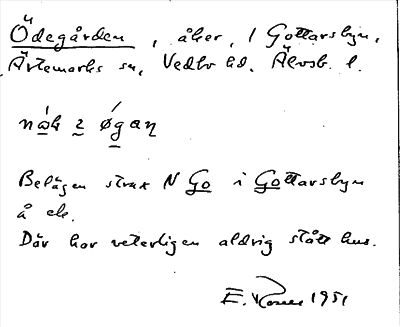 Ödegården, åker, i Gottarsbyn,
Ärtemarks sn, Vedbo hd. Älvsb. l.
Belägen strax N Go i Gottarsbyn
å ek.
Där har veterligen aldrig stått hus.
E. 1951